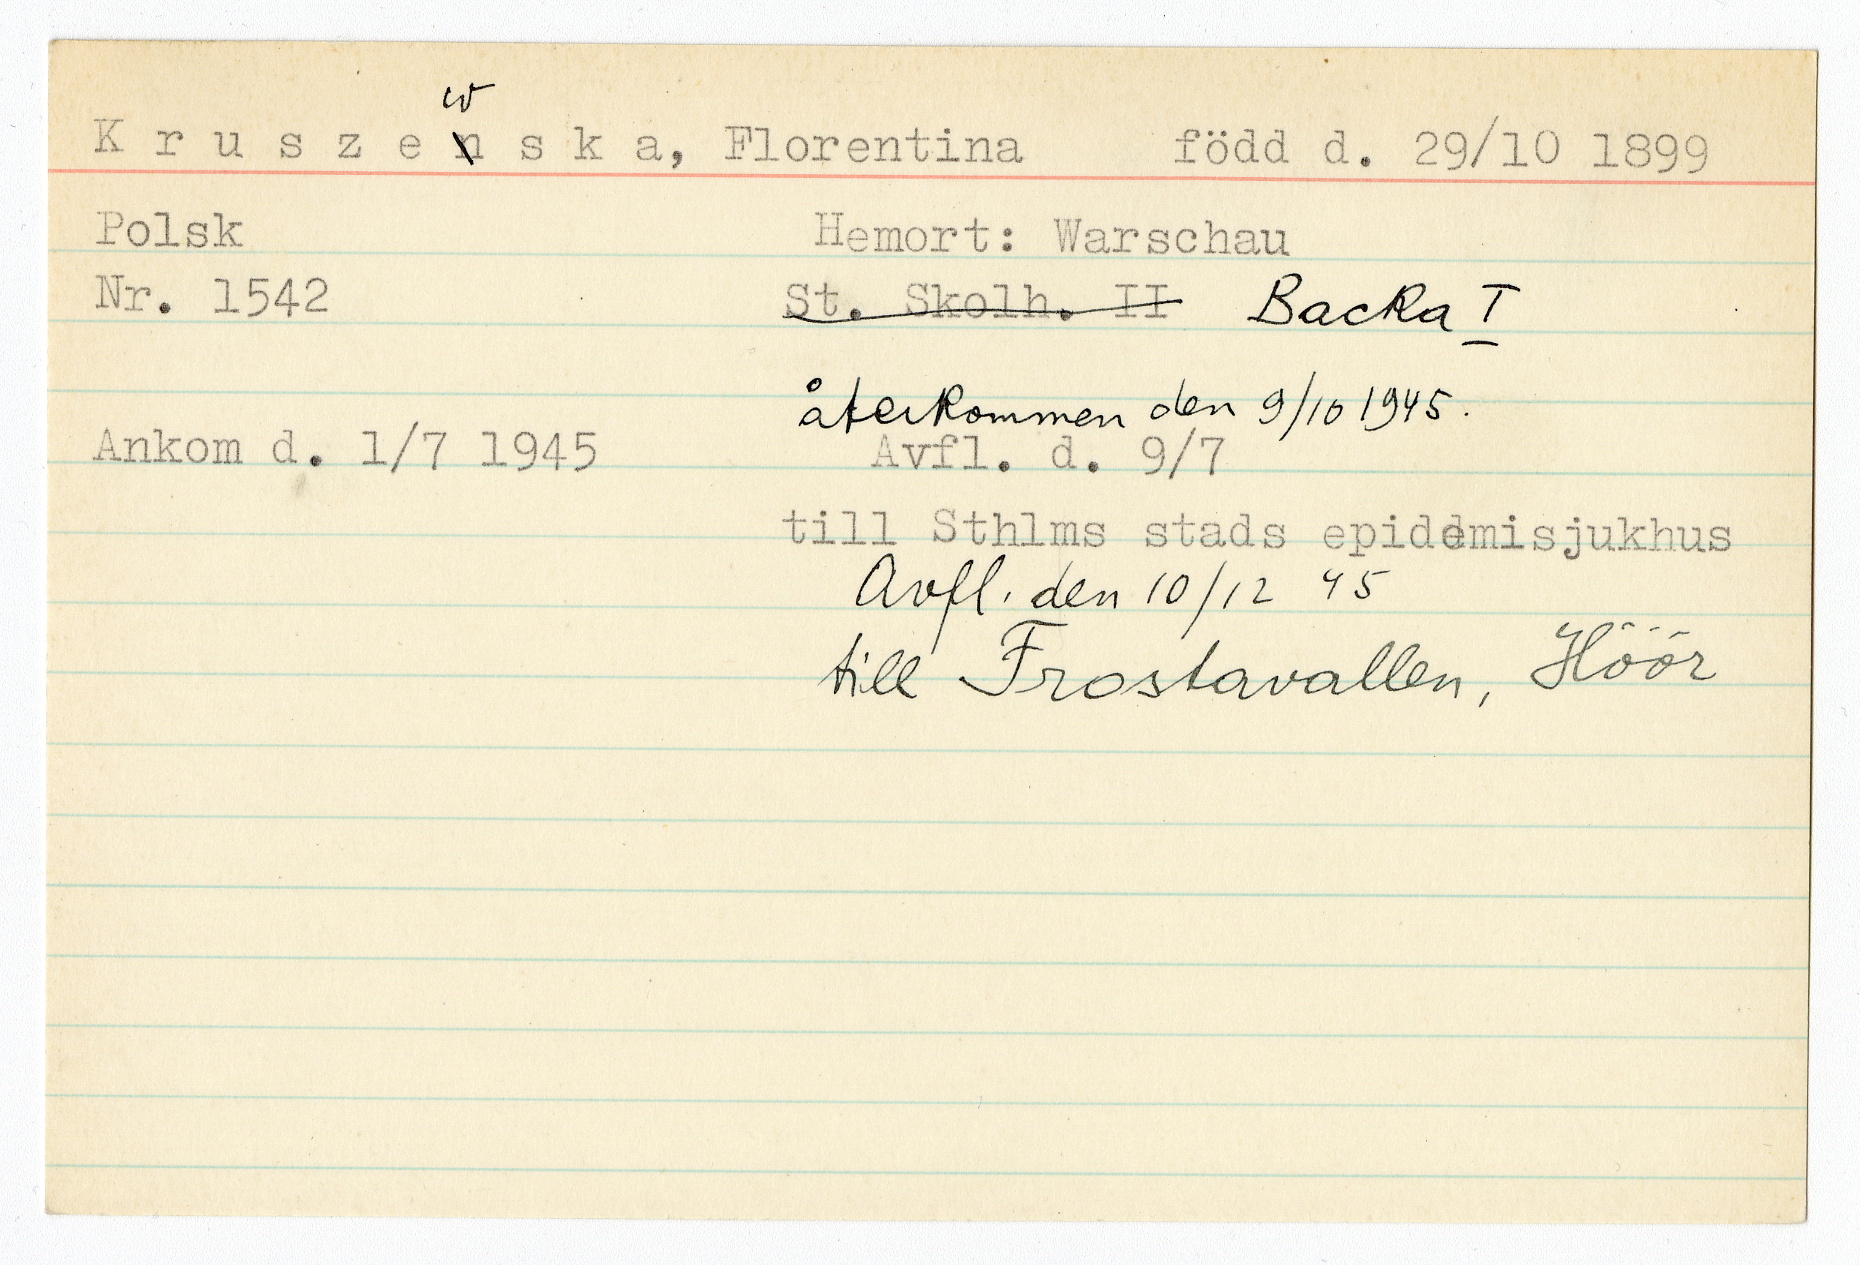 w
K r u s z e n s k a, Florentina född d. 29/10 1899
Polsk Hemort: Warschau
Nr. 1542 St. Skolh. II Backa I
återkommen den 9/10 1945.
Ankom d. 1/7 1945 Avfl. d. 9/7
till Sthlms stads epidemisjukhus
Avfl. den 10/12 45
till Frostavallen, Höör